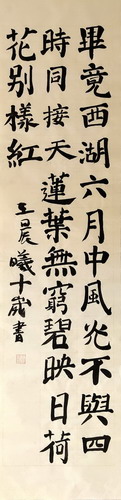 畢竟西湖六月中風光不與四
時同接天蓮葉無窮碧映日荷
花别樣紅
王晨曦十歲書